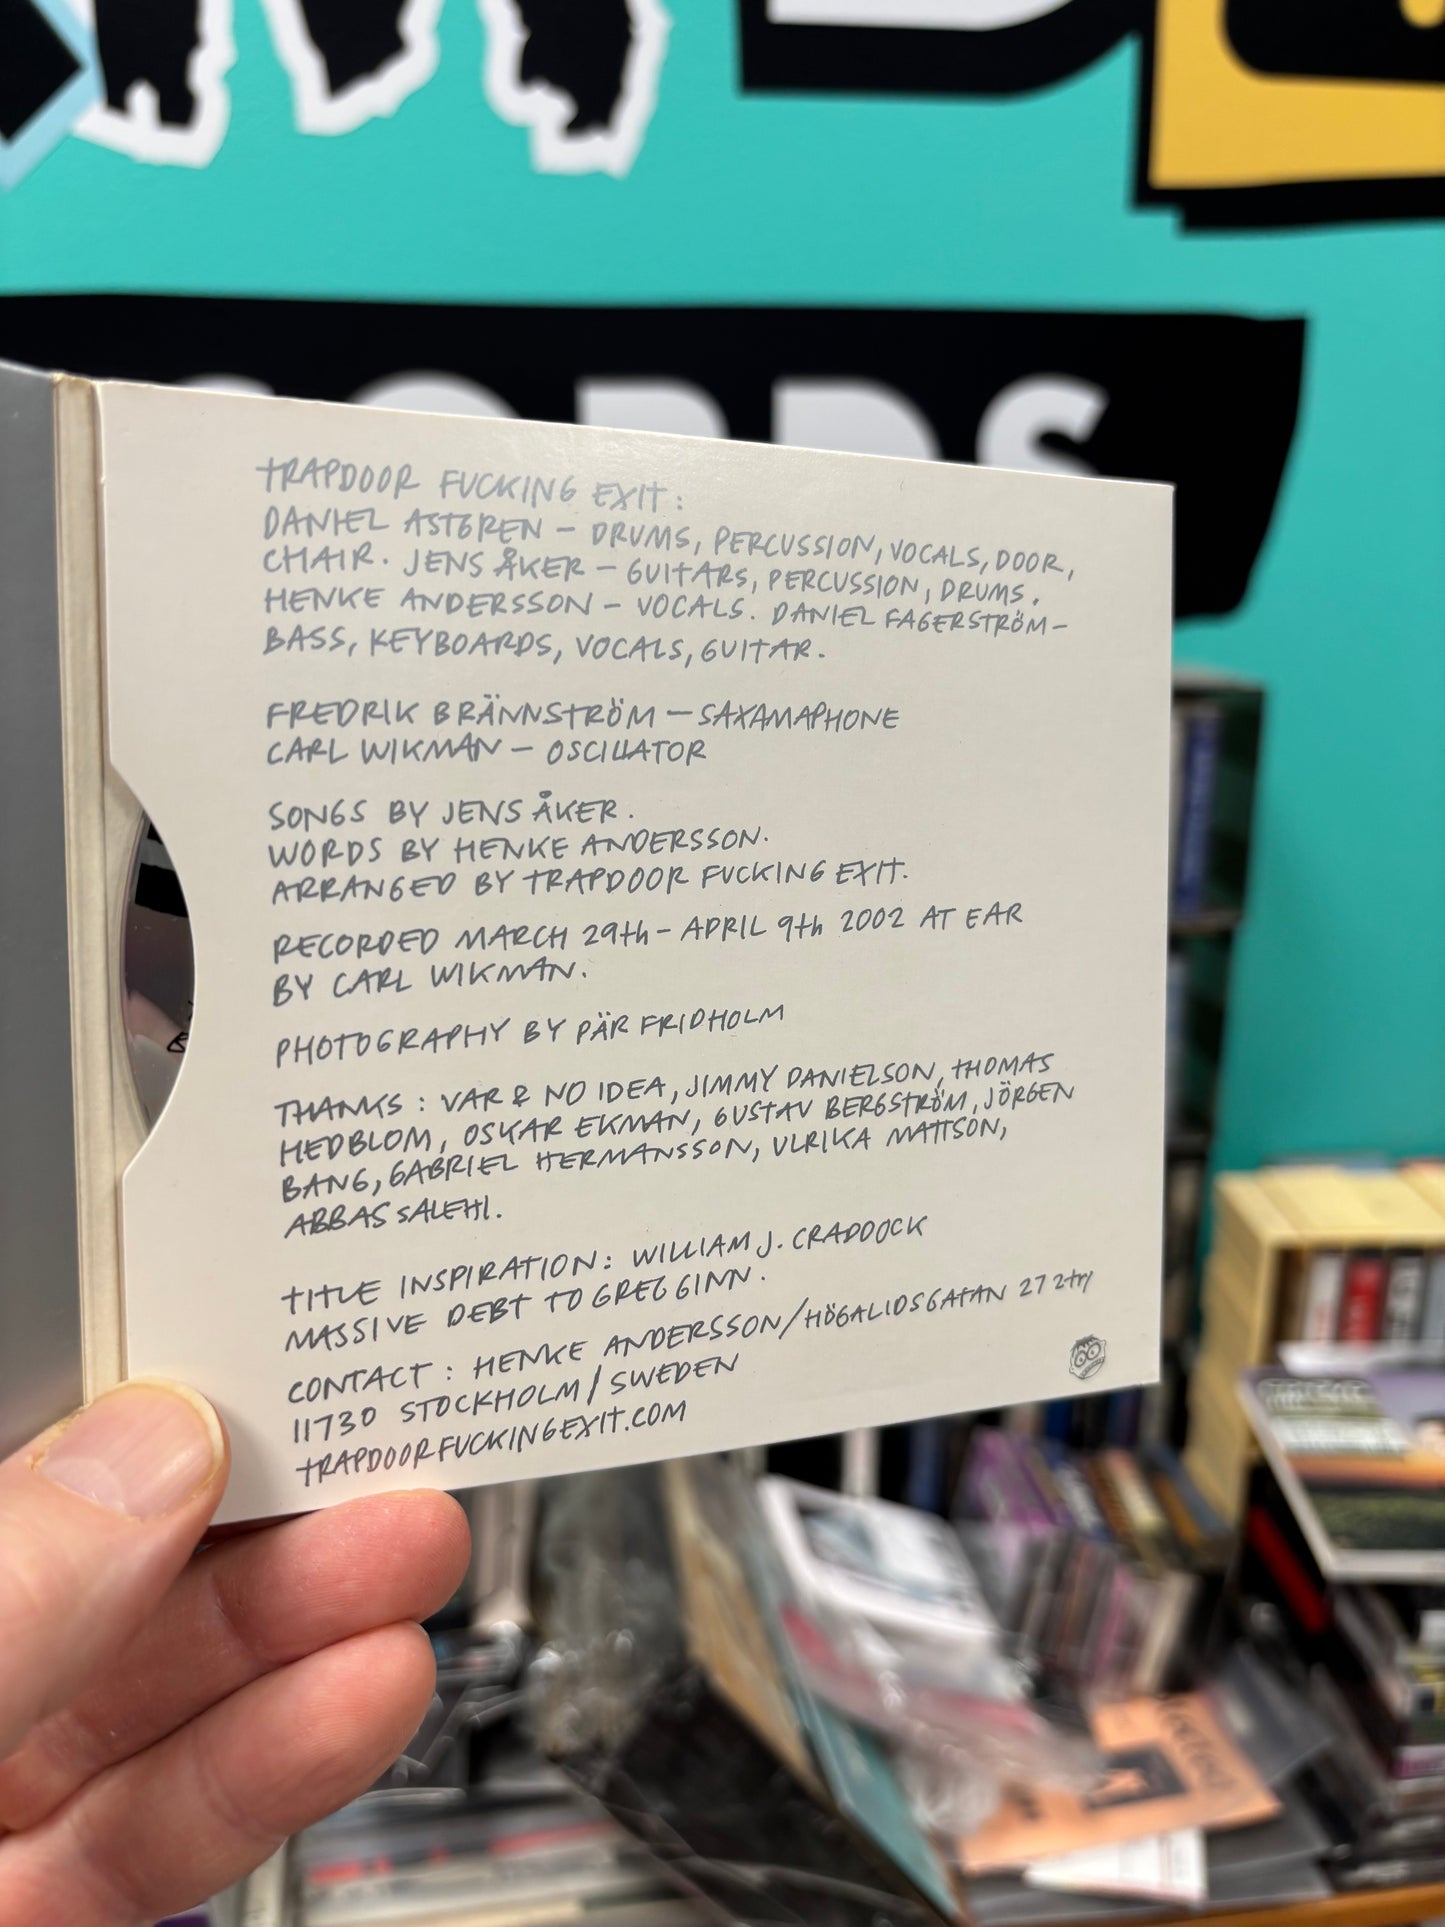 RDS
TRAPDOOR FUCKING EXIT:
DANIEL ASTGREN – DRUMS, PERCUSSION, VOCALS, DOOR,
CHAIR. JENS ÅKER – GUITARS, PERCUSSION, DRUMS.
HENKE ANDERSSON – VOCALS. DANIEL FAGERSTRÖM –
BASS, KEYBOARDS, VOCALS, GUITAR.
FREDRIK BRÄNNSTRÖM – SAXAMAPHONE
CARL WIKMAN – OSCILLATOR
SONGS BY JENS ÅKER.
WORDS BY HENKE ANDERSSON.
ARRANGED BY TRAPDOOR FUCKING EXIT.
RECORDED MARCH 29th – APRIL 9th 2002 AT EAR
BY CARL WIKMAN.
PHOTOGRAPHY BY PÄR FRIDHOLM
THANKS: VAR & NO IDEA, JIMMY DANIELSON, THOMAS
HEDBLOM, OSKAR EKMAN, GUSTAV BERGSTRÖM, JÖRGEN
BANG, GABRIEL HERMANSSON, ULRIKA MATTSON,
ABBAS SALEHI.
TITLE INSPIRATION: WILLIAM J. CRADDOCK
MASSIVE DEBT TO GREG GINN.
CONTACT: HENKE ANDERSSON/HÖGALIDSGATAN 27 2tr
11730 STOCKHOLM/SWEDEN
TRAPDOORFUCKINGEXIT.COM